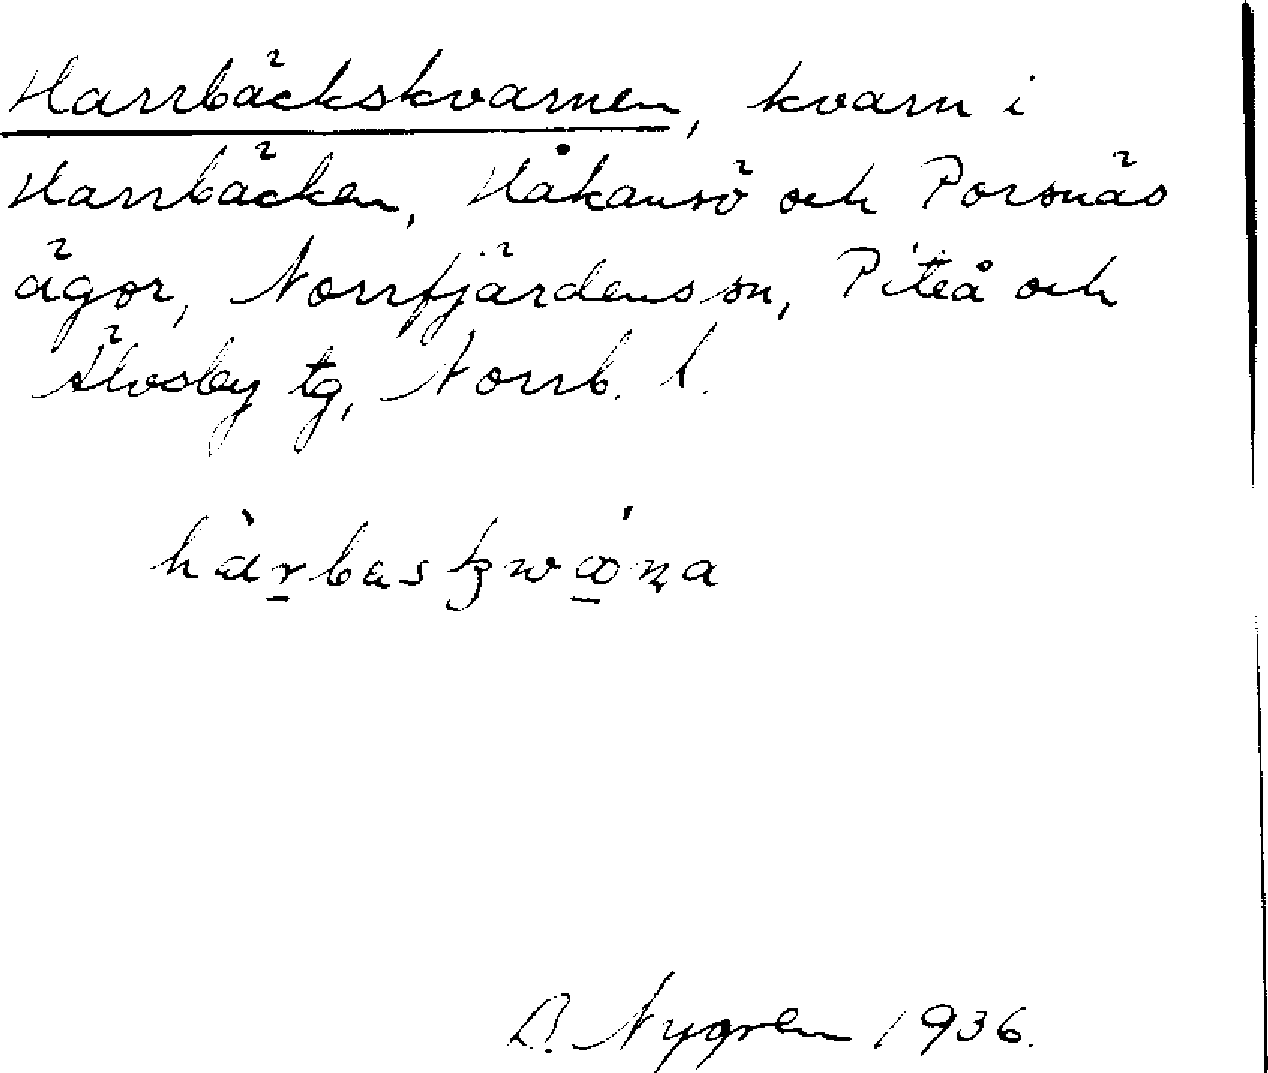 Harrbäckskvarnen, kvarn i
Harrbäcken, Håkansö och Porsnäs
ägor, Norrfjärdens sn, Piteå och
Älvsby tg, Norrb. l.
D. Nygren 1936.